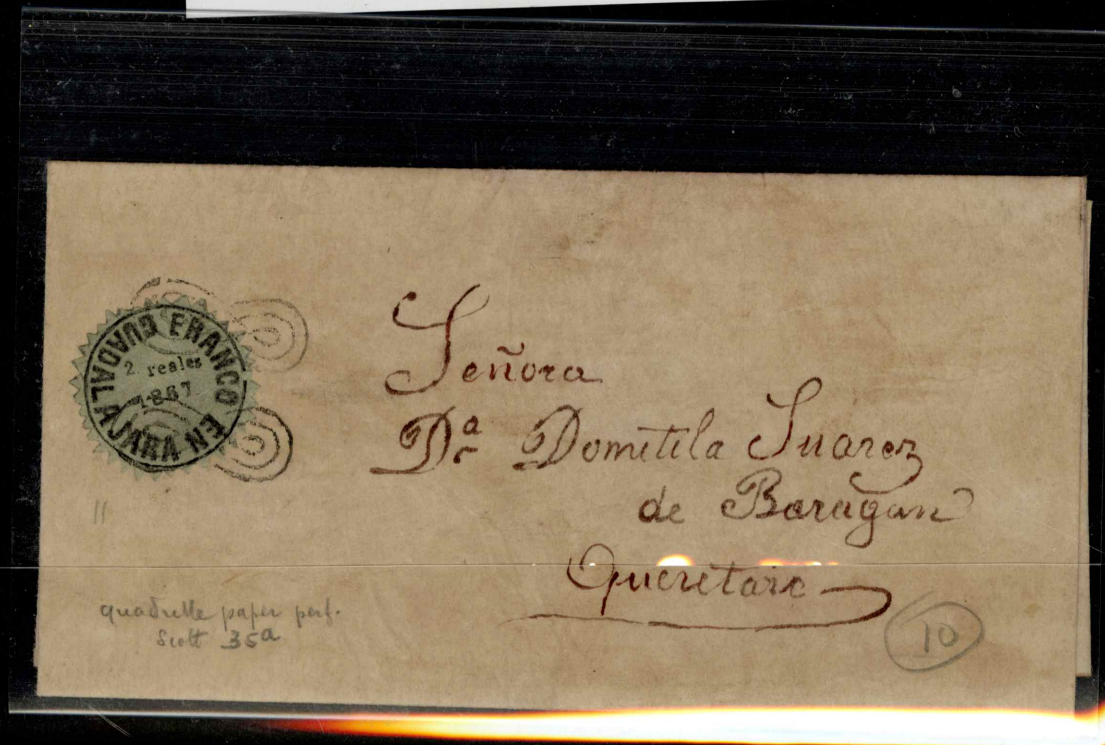 FRANCO EN GUADALAJARA
2 reales
1867
Señora
Da Dometila Suarez
de Baragan
Queretaro
11
quadrille paper perf.
Scott 35a
10